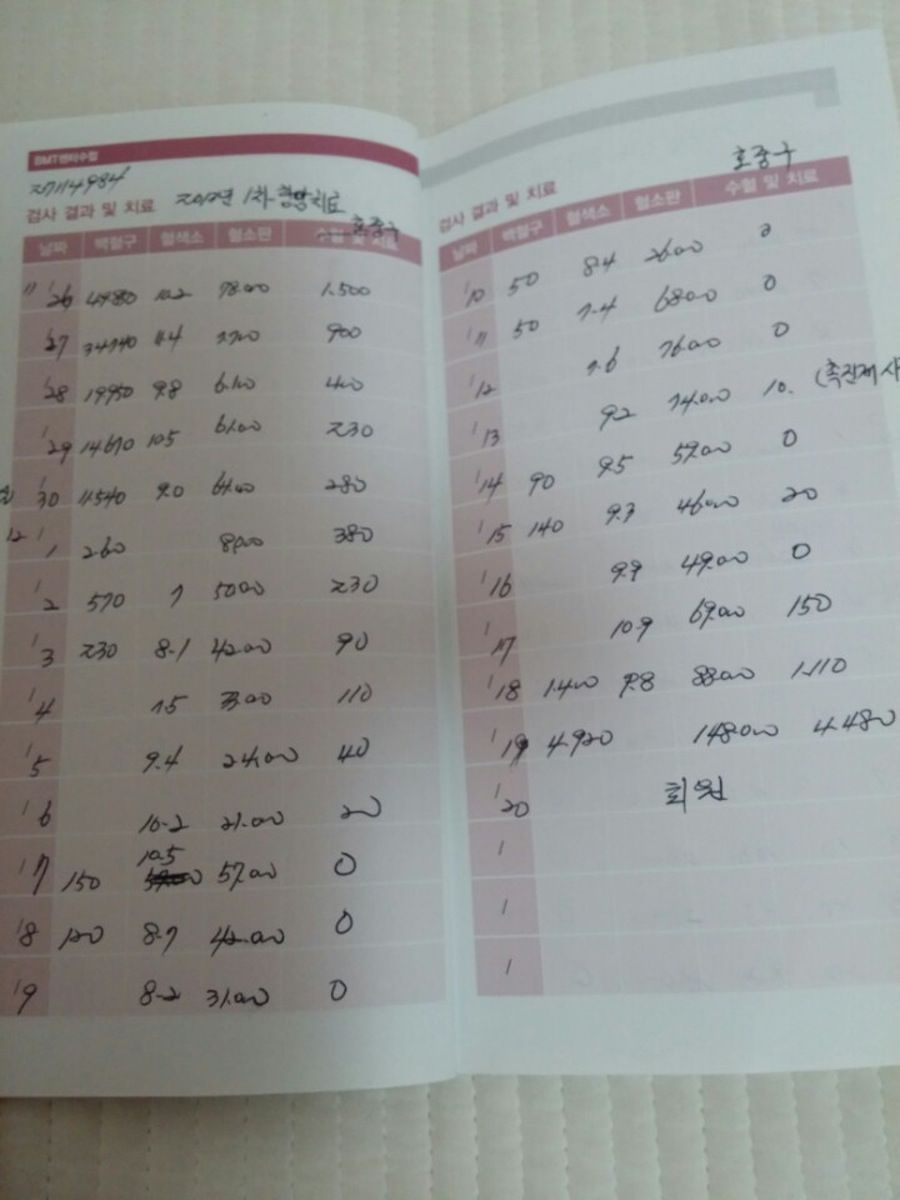 BMT센터수첩
검사 결과 및 치료
호중구
날짜 백혈구 혈색소 혈소판 수혈 및 치료
11/26 10.2 78.000 1.500
/27 34740 11.4 900
/28 19950 9.8 400
/29 14.610 10.5 61.000 230
/30 11.540 9.0 280
12/1 260 380
/2 570 7 50.00 230
/3 230 8.1 42.00 90
/4 7.5 33.00 110
/5 9.4 24.000 40
/6 10.2 21.000 20
10.5
/7 150 57.000 0
/8 120 8.7 42.000 0
/9 8.2 31.000 0
호중구
검사 결과 및 치료
날짜 백혈구 혈색소 혈소판 수혈 및 치료
/10 50 8.4 26.00 0
/11 50 7.4 68.00 0
/12 7.6 76.00 0
/13 9.2 74.000 10. (촉진제
/14 90 9.5 59.000 0
/15 140 9.3 46.000 20
/16 9.9 49.000 0
/17 10.9 69.000 150
/18 1.400 9.8 88.000 1.110
/19 4.920 148.000 4.480
/20
/
/
/